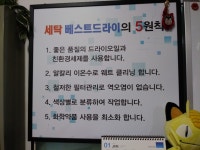 세탁 베스트드라이의 5원칙
1. 좋은 품질의 드라이오일과
친환경세제를 사용합니다.
2. 알칼리 이온수로 웨트 클리닝 합니다.
3. 철저한 필터관리로 역오염이 없습니다.
4. 색상별로 분류하여 작업합니다.
5. 화학약품 사용을 최소화 합니다.
01